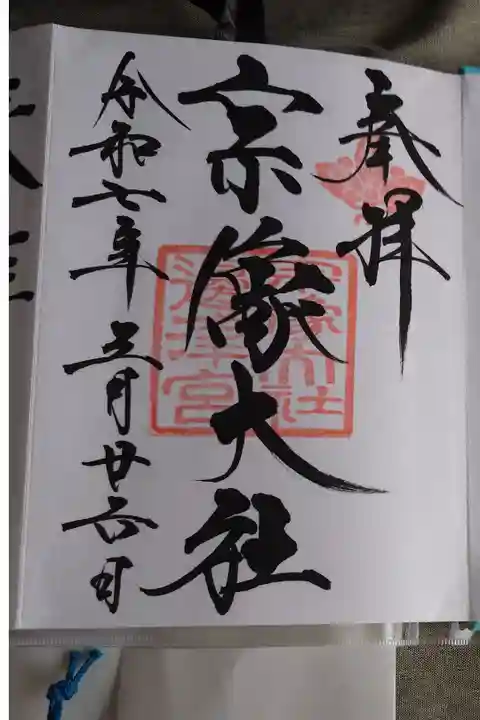 奉拝
宗像大社
令和七年三月廿六日
宗像大社
邊津宮